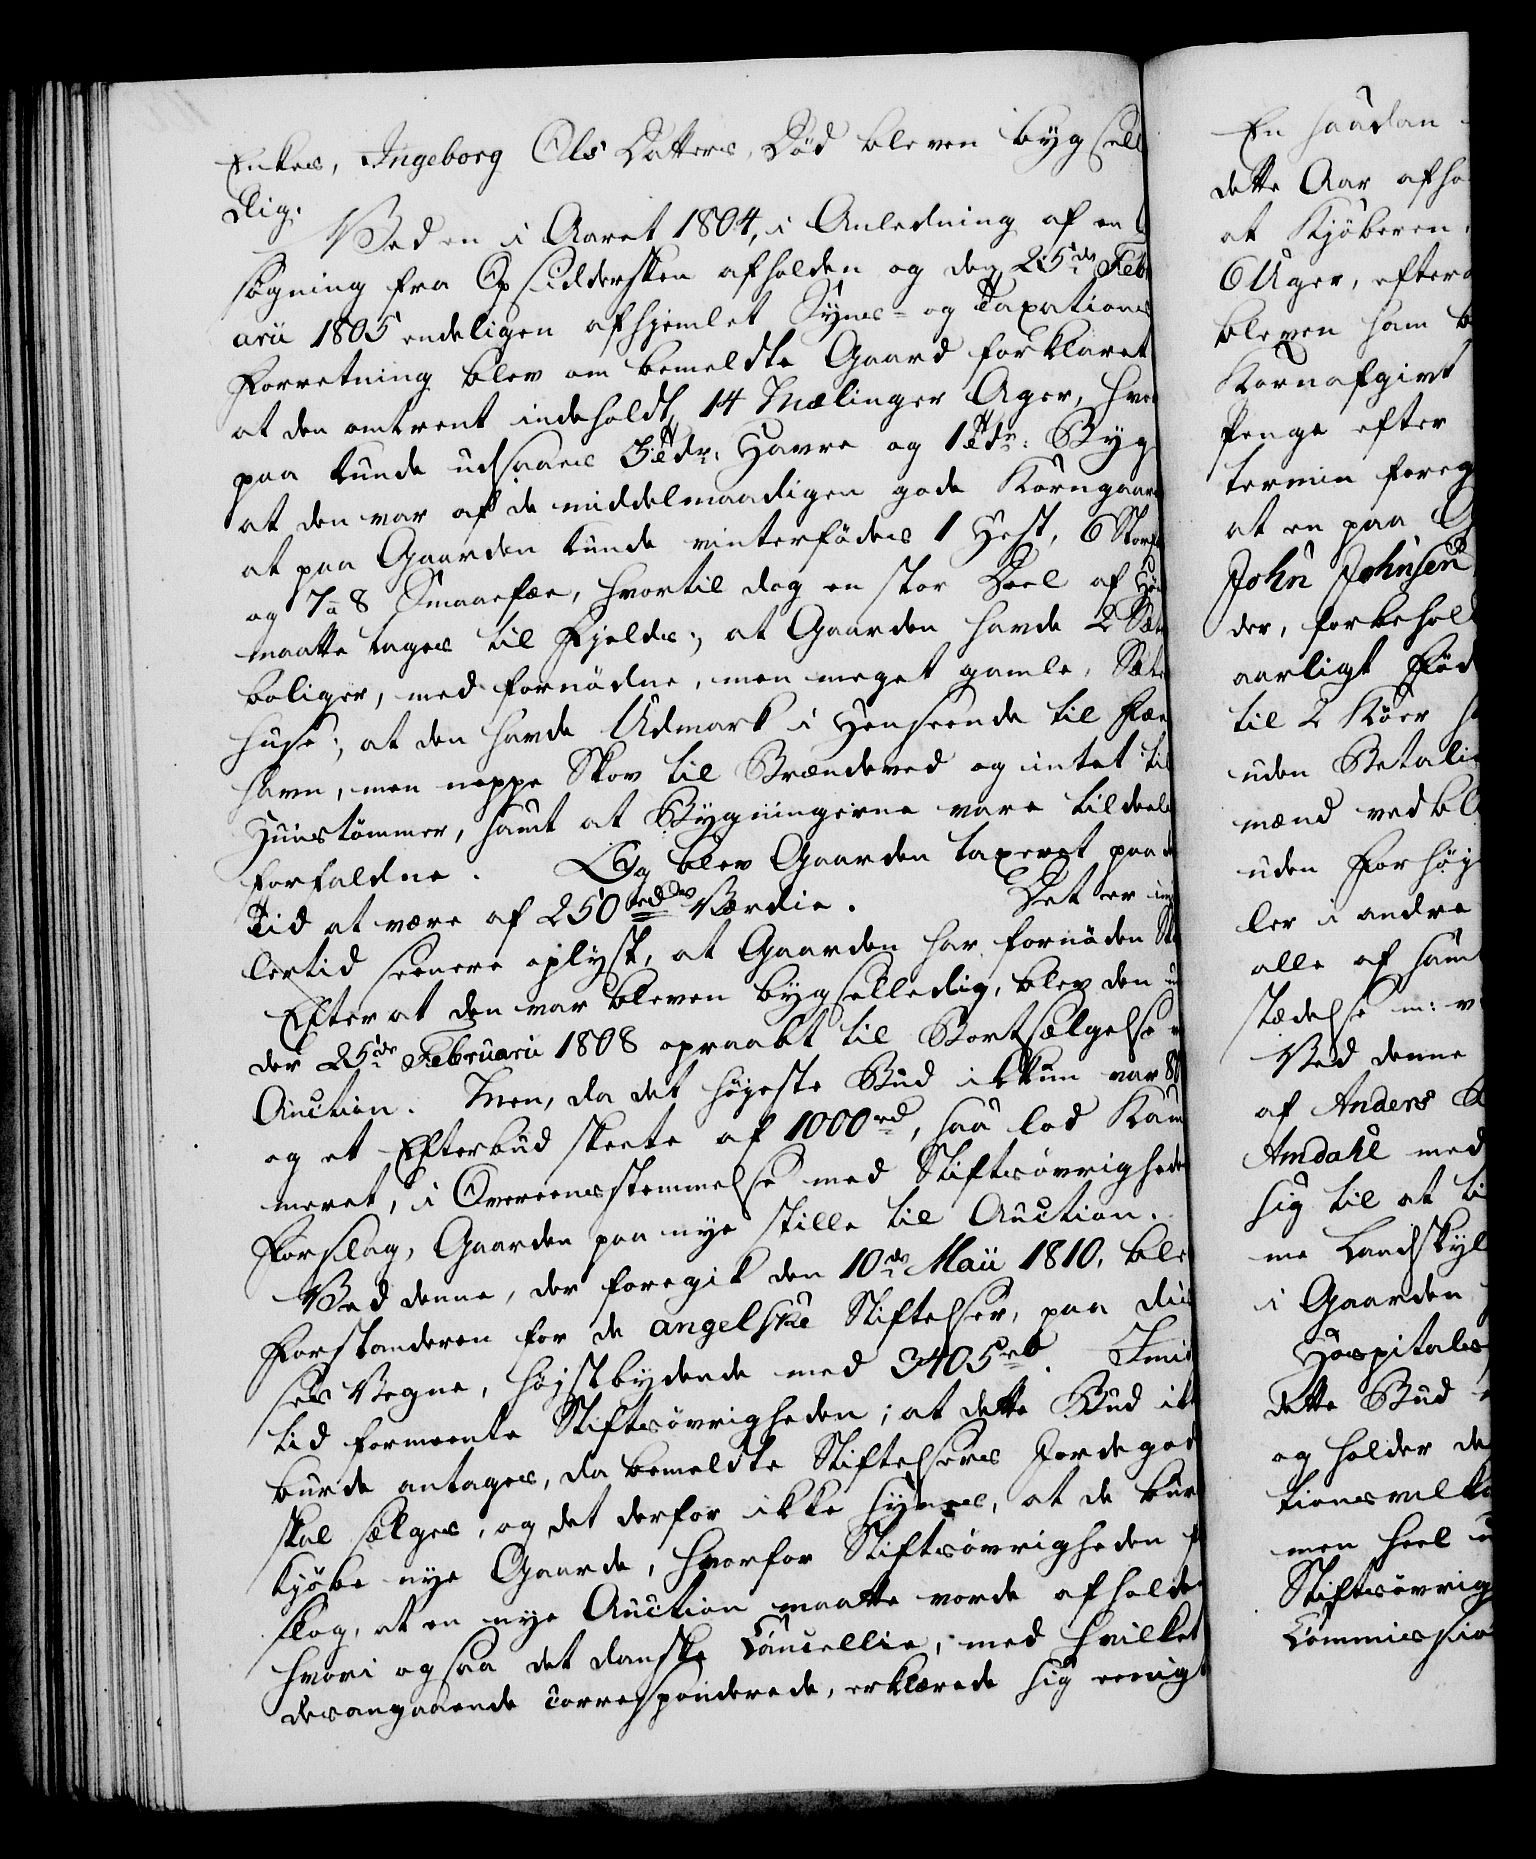 Enkes, Ingeborg Ols Datters, Död bleven bygsell
dig.
Ved en i Aaret 1804, i Anledning af en
søgning fra Opsiddersken afholden og den 25de Feb
arii 1805 endeligen afhjemlet Syns- og Taxations
Forretning blev om bemeldte Gaard forklaret
at den omtrent indeholdt 14 Mælinger Ager, hvor
paa kunde udsaaes 3 Tdr. Havre og 1 Tdr: Byg
at den var af de middelmaadigen gode Korngaar
at paa Gaarden kunde vinterfödes 1 Hest, 6 Storf
og 7 a 8 Smaaefæe, hvortil dog en stor Deel af Hö
maatte tages til Fjelds; at Gaarden havde 2 Sæt
boliger, med fornödne, men meget gamle, Sæte
huse; at den havde Udmark i Henseende til Fæe
havn, men neppe Skov til Brændeved og intet til
Huustömmer, samt at Bygningerne vare tildeels
forfaldne. Og blev Gaarden taxeret paa d
Tid at være af 250 rdds Værdie. Det er im
lertid seenere oplyst, at Gaarden har fornöden Sk
Efter at den var bleven bygselledig, blev den u
der 25de Februarii 1808 opraabt til Bortsælgelse v
Auction. Men, da det höjeste Bud ikkun var 80
og et Efterbud skeete af 1000 rd, saa lod Kam
meret, i Overeensstemmelse med Stiftsövrighede
Forslag, Gaarden paa nye stille til Auction.
Ved denne, der foregik den 10de Maii 1810, ble
Forstanderen for de angelske Stiftelser, paa dis
ses Vegne, höjstbydende med 3405 rd. Imid
tid formeente Stiftsövrigheden; at dette Bud ik
burde antages, da bemeldte Stiftelsers Jordegod
skal sælges, og det derfor ikke synes, at de bur
kjöbe nye Gaarde, hvorfor Stiftsövrigheden f
slog, at en nye Auction maatte vorde afholde
hvori ogsaa det danske Cancellie, med hvilket
desangaaende correspondereде, erklærede sig eenigt
En saadan
dette Aar afho
at Kjöberen
6 Uger, efter
bleven ham b
Kornafgivt
Penge efter
termin foreg
at en paa G
John Johnsen
der, forbehol
aarligt Föd
til 2 Köer
uden Betalin
mænd vedbl
uden Forhöj
ler i andre
alle af sam
stædelse m: v
Ved denne
af Anders
Amdahl med
sig til at ti
me Landskyl
i Gaarden
Hospitals
dette Bud
og holder de
tionsvilka
men heel u
Stiftsövrig
Commissio